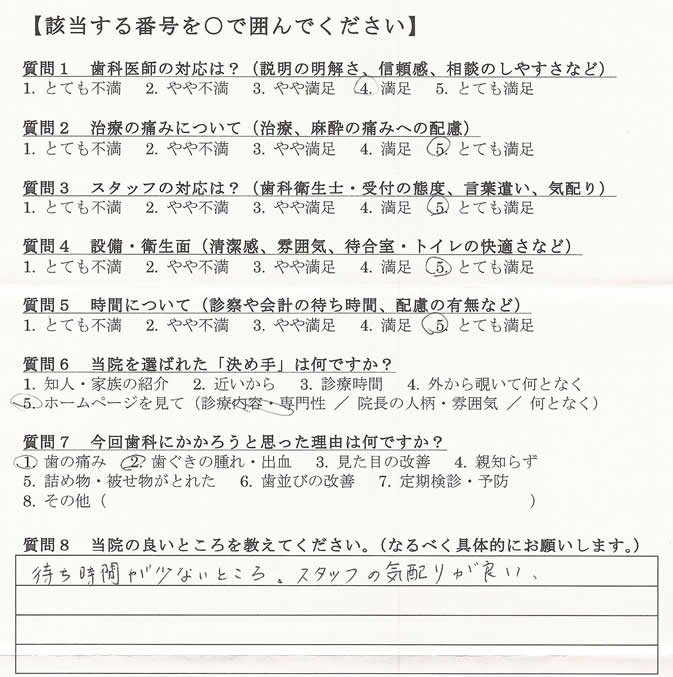 【該当する番号を○で囲んでください】
質問１　歯科医師の対応は？（説明の明解さ、信頼感、相談のしやすさなど）
1. とても不満　2. やや不満　3. やや満足　4. 満足　5. とても満足
質問２　治療の痛みについて（治療、麻酔の痛みへの配慮）
1. とても不満　2. やや不満　3. やや満足　4. 満足　5. とても満足
質問３　スタッフの対応は？（歯科衛生士・受付の態度、言葉遣い、気配り）
1. とても不満　2. やや不満　3. やや満足　4. 満足　5. とても満足
質問４　設備・衛生面（清潔感、雰囲気、待合室・トイレの快適さなど）
1. とても不満　2. やや不満　3. やや満足　4. 満足　5. とても満足
質問５　時間について（診察や会計の待ち時間、配慮の有無など）
1. とても不満　2. やや不満　3. やや満足　4. 満足　5. とても満足
質問６　当院を選ばれた「決め手」は何ですか？
1. 知人・家族の紹介　2. 近いから　3. 診療時間　4. 外から覗いて何となく
5. ホームページを見て（診療内容・専門性 ／ 院長の人柄・雰囲気 ／ 何となく）
質問７　今回歯科にかかろうと思った理由は何ですか？
1. 歯の痛み　2. 歯ぐきの腫れ・出血　3. 見た目の改善　4. 親知らず
5. 詰め物・被せ物がとれた　6. 歯並びの改善　7. 定期検診・予防
8. その他（　　　　　　　　　　）
質問８　当院の良いところを教えてください。（なるべく具体的にお願いします。）
待ち時間が少ないところ。スタッフの気配りが良い、